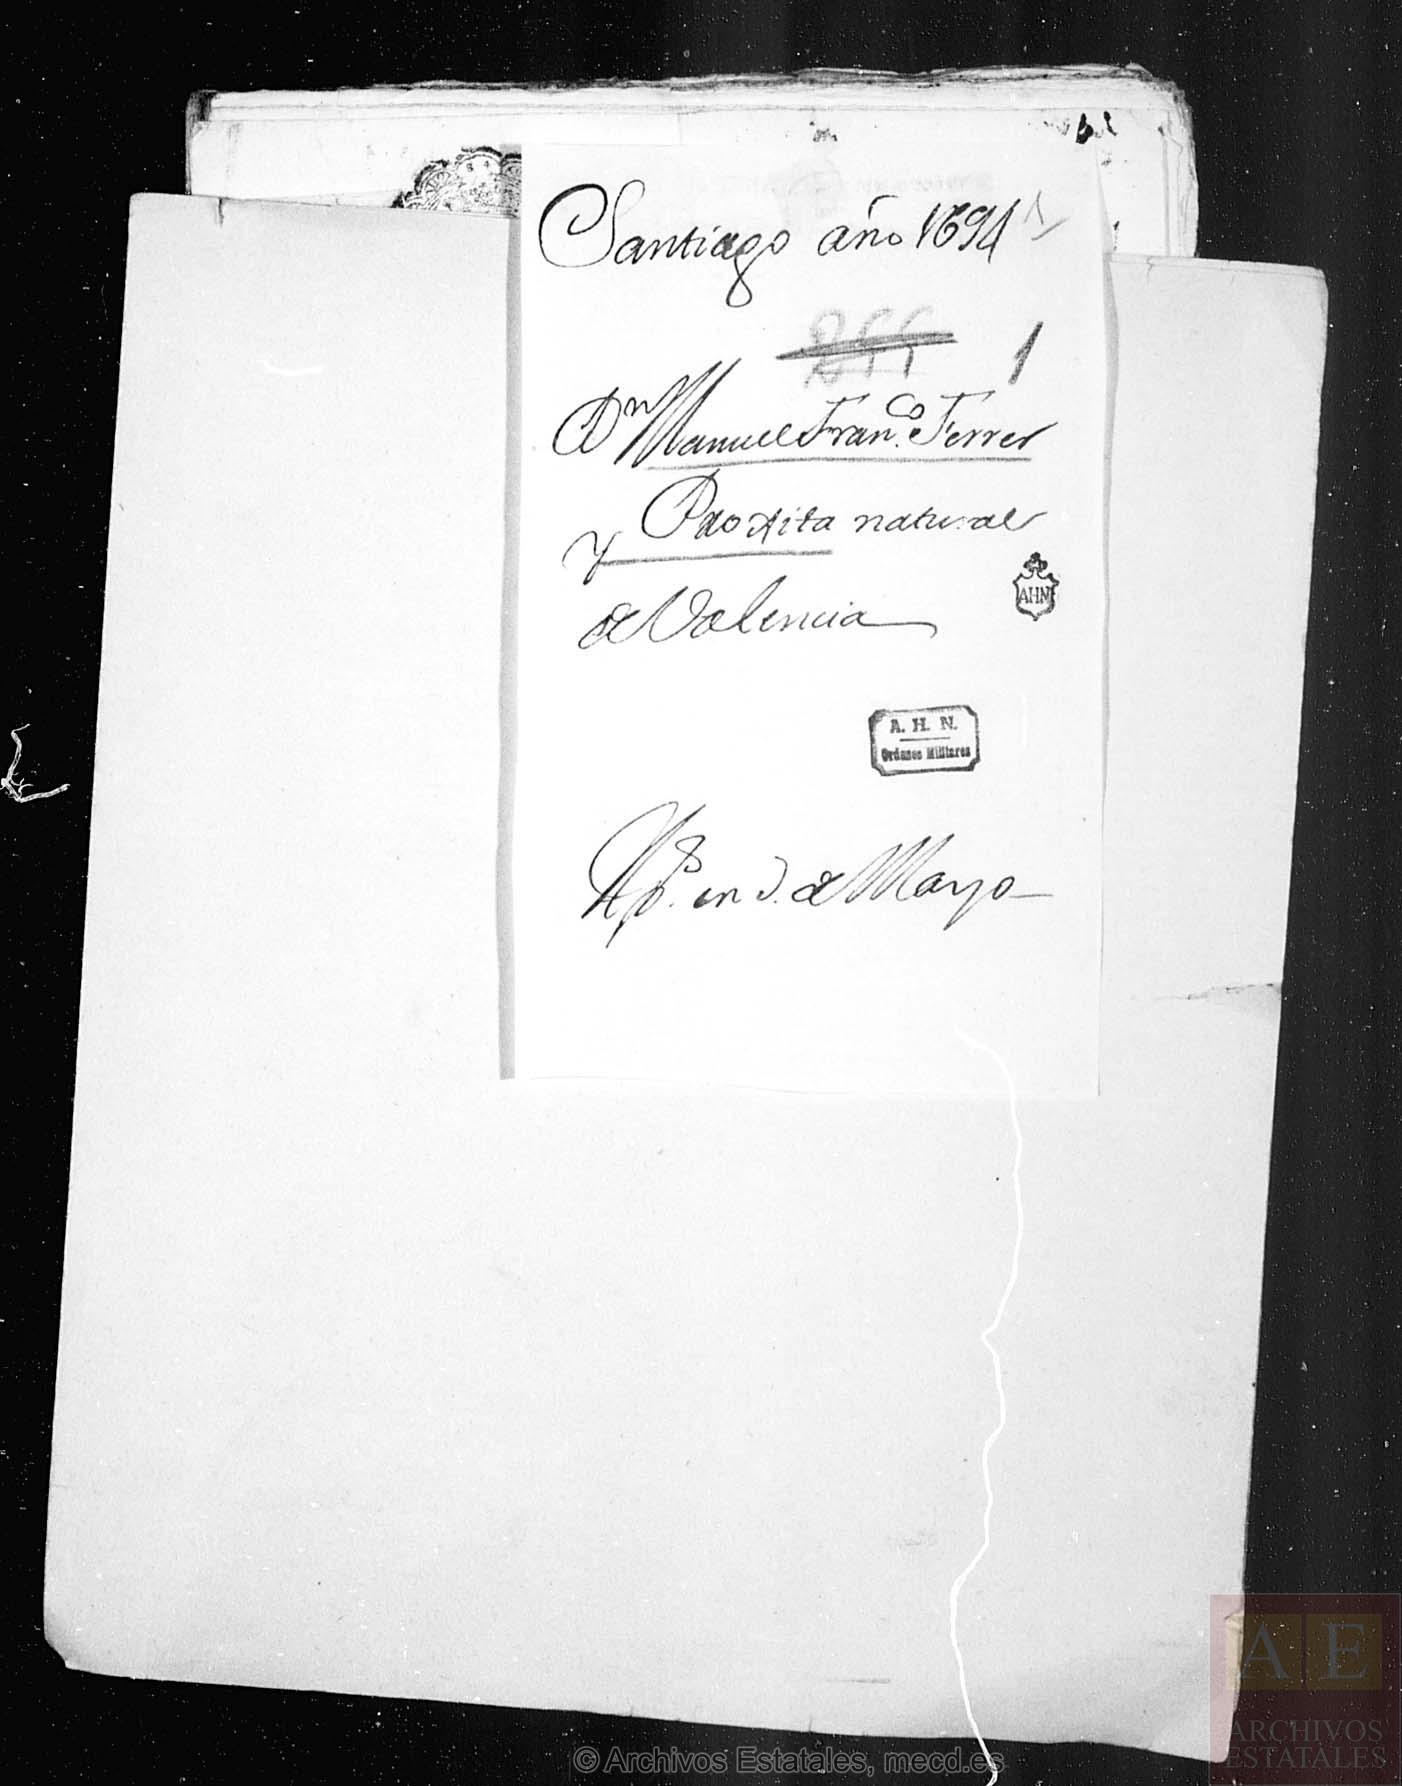 Santiago año 1694
1
Dn Manuel Franco. Ferrer
y Proxita natural
de Valencia
AHN
A. H. N.
Ordenes Militares
en de Mayo
© Archivos Estatales, mecd.es
AE
ARCHIVOS
ESTATALES